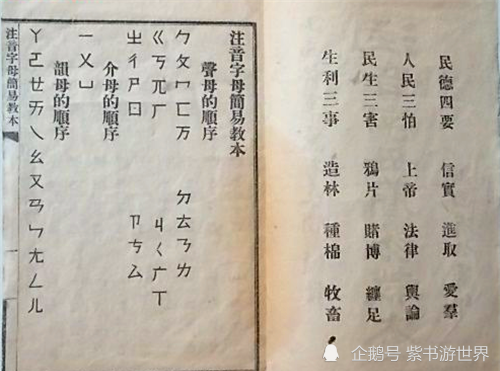 民德四要 信實 進取 愛羣
人民三怕 上帝 法律 輿論
民生三害 鴉片 賭博 纏足
生利三事 造林 種棉 牧畜
注音字母簡易教本
聲母的順序
ㄅㄆㄇㄈㄪ ㄉㄊㄋㄌ
ㄍㄎㄫㄏ ㄐㄑㄬㄒ
ㄓㄔㄕㄖ ㄗㄘㄙ
介母的順序
一ㄨㄩ
韻母的順序
ㄚㄛㄝㄞㄟㄠㄡㄢㄣㄤㄥㄦ
注音字母簡易教本
企鹅号 紫书游世界